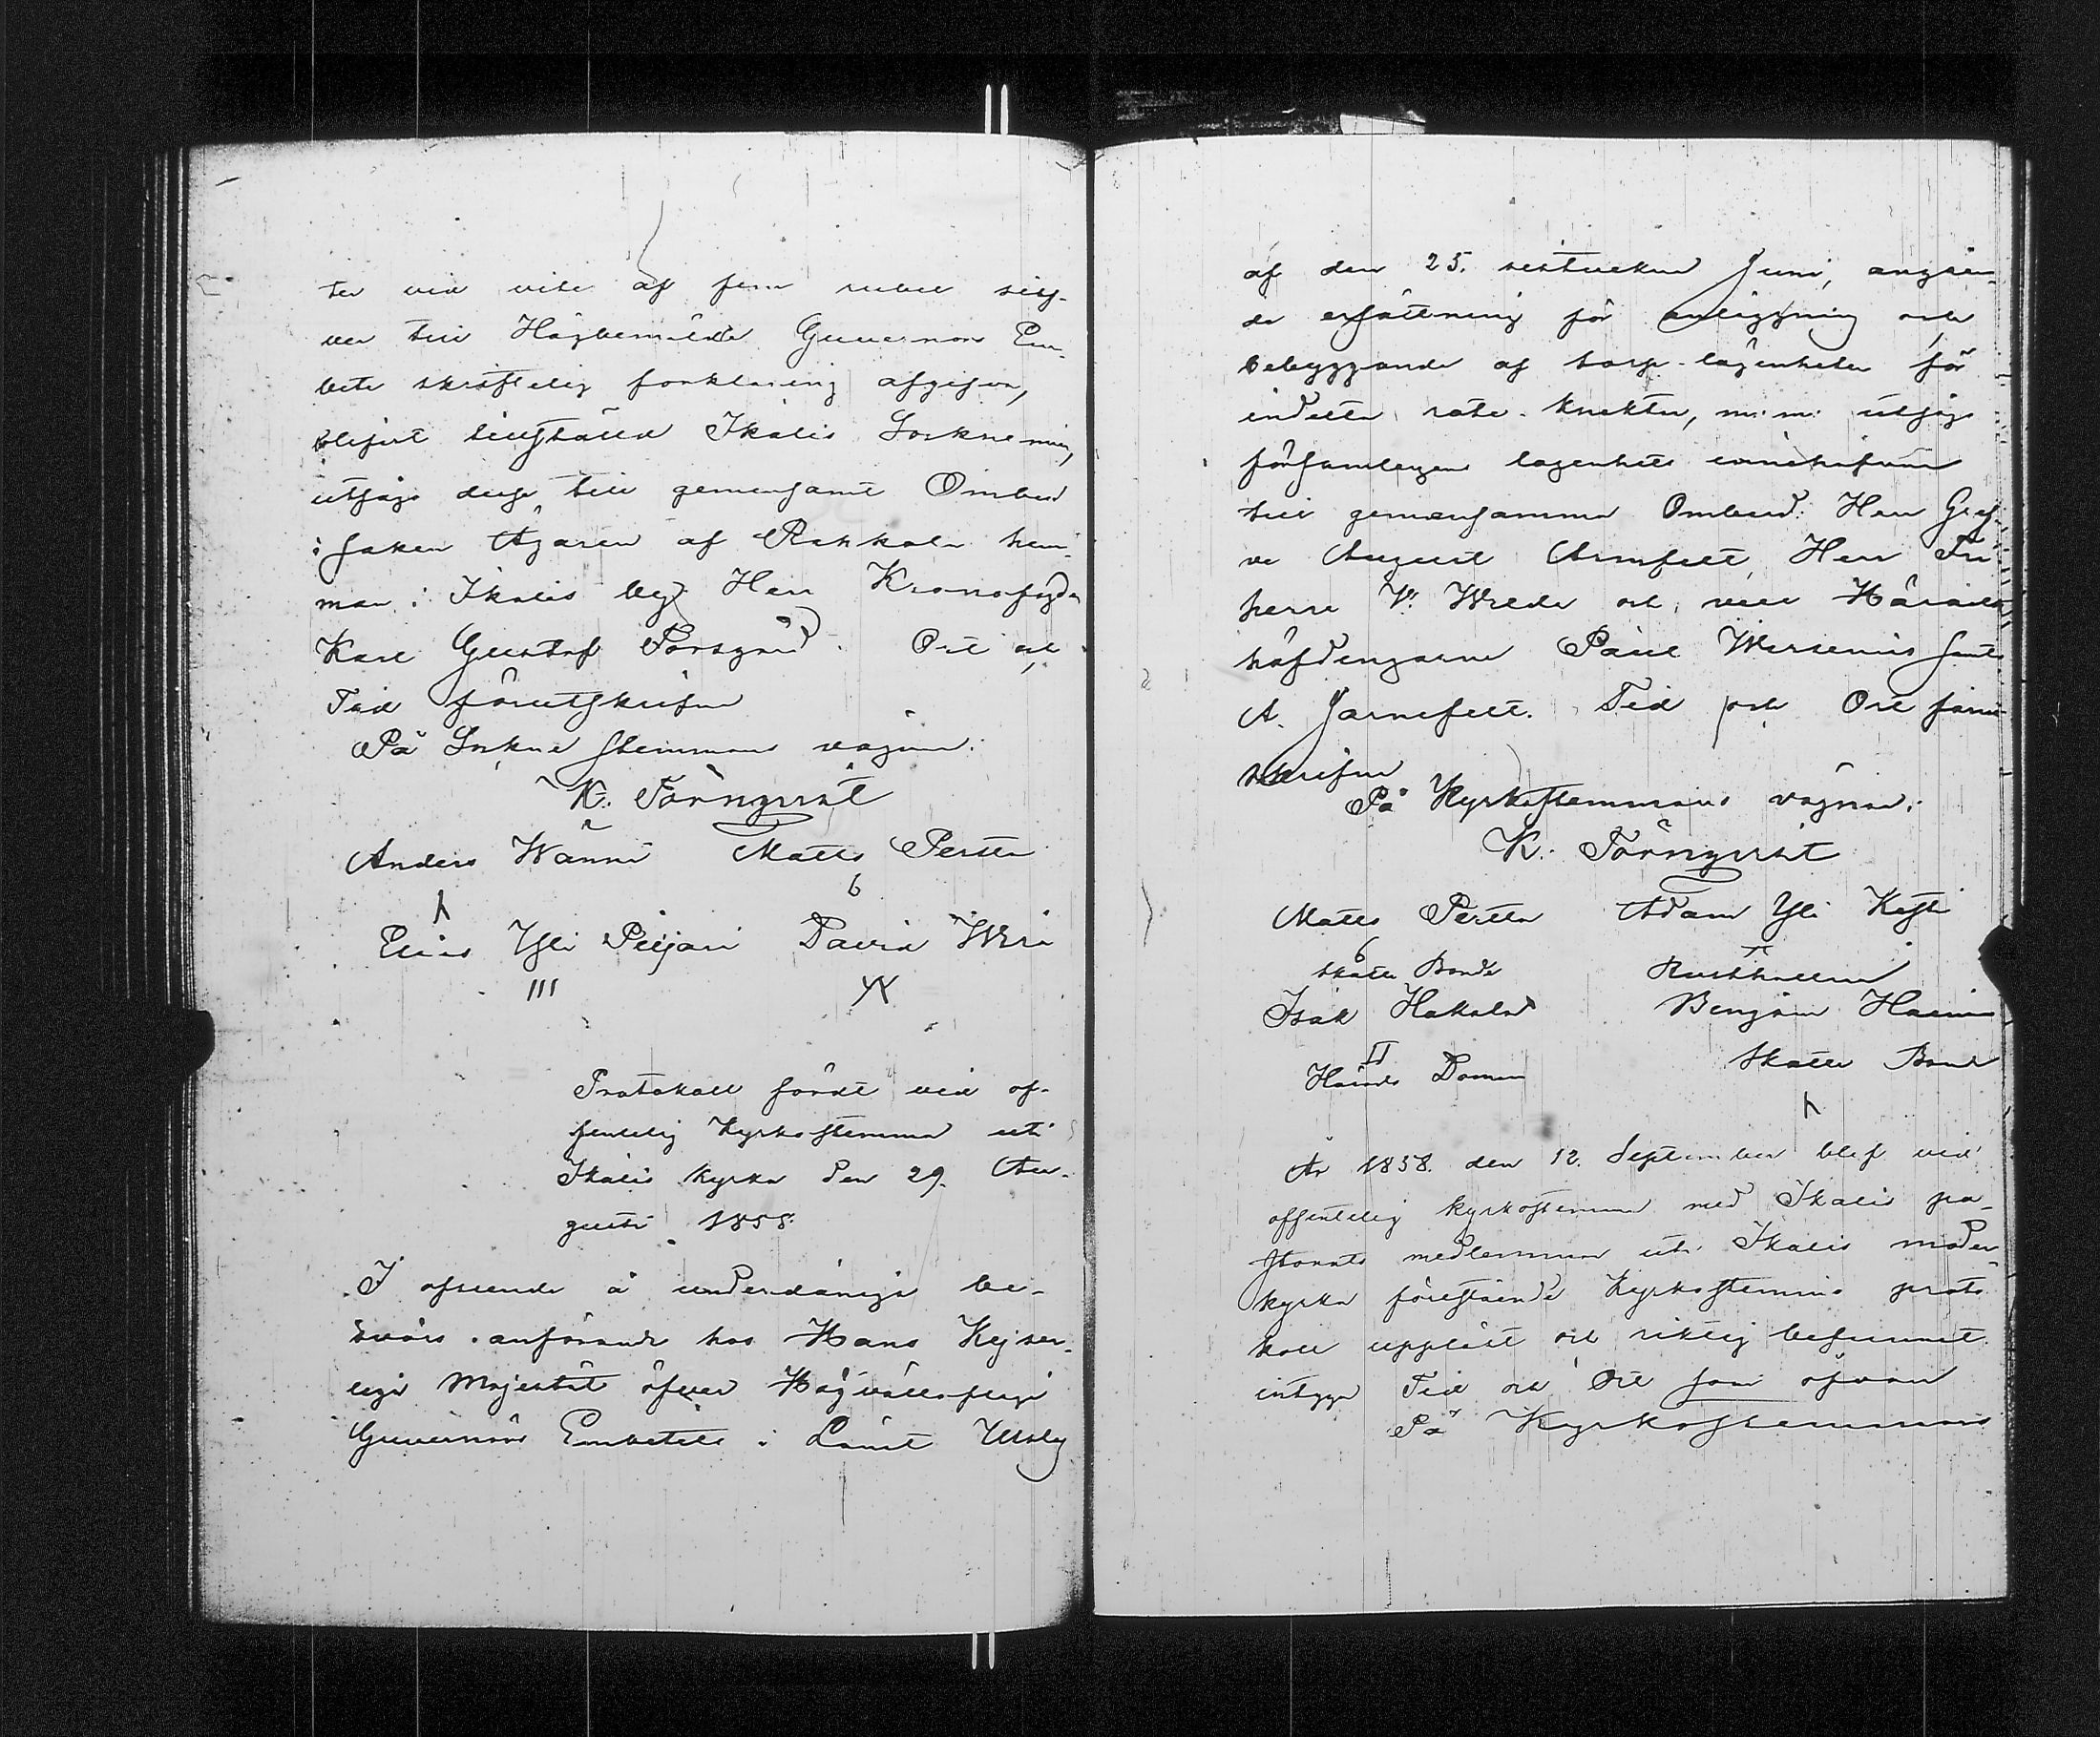 ter vid vite af fem rubel silf-
ver till Högbemälde Guvernörs Em-
bete skriftelig förklaring afgifva,
blifvit tillstäld Ikalis Socknemän,
utsågs desse till gemensamt Ombud
i saken Ägaren af Rahkola hem-
man i Ikalis by Herr Kronofogden
Karl Gustaf Forsgård. Ort och
Tid förutskrifne
På Sockne stemmans vägnar:
K. Törnqvist
Anders Wänni Matts Perttu
6
Elias Yli Piijari David Wiri
III
Protokoll fördt vid of-
fentelig Kyrkostemma uti
Ikalis kyrka den 29. Au-
gusti 1858.
I afseende å underdåniga be-
svärs anförande hos Hans Kejser-
lige Majestät öfver Högvällofliga
Guvernörs Embetets i Länet Utslag
af den 25. sistvekne Juni, angåen-
de ersättning för anläggning och
bebyggande af torp-lägenheter för
indelte rote-knektar, m: m: utsågs
församlingens lagenhets innehafvare
till gemensamma Ombud: Herr Gref-
ve August Armfelt, Herr Fri-
herre V: Wrede och vice Härads
höfdingarne Paul Wirsenius samt
A. Järnefelt. Tid och Ort förut
skrifne
På Kyrkostemmans vägnar:
K. Törnqvist
Matts Perttu Adam Yli Kesti
6
Skatte Bonde Rusthållare
Isak Hakala Benjam Hanni
II
Härads Domare Skatte Bonde
År 1858. den 12. September blef vid
offentelig kyrkostemma med Ikalis pa-
storats medlemmar uti Ikalis moder
kyrka föreståënde Kyrkostemmo proto
koll uppläst och riktig befunnet
intyga Tid och Ort som ofvan
På Kyrkostemmans